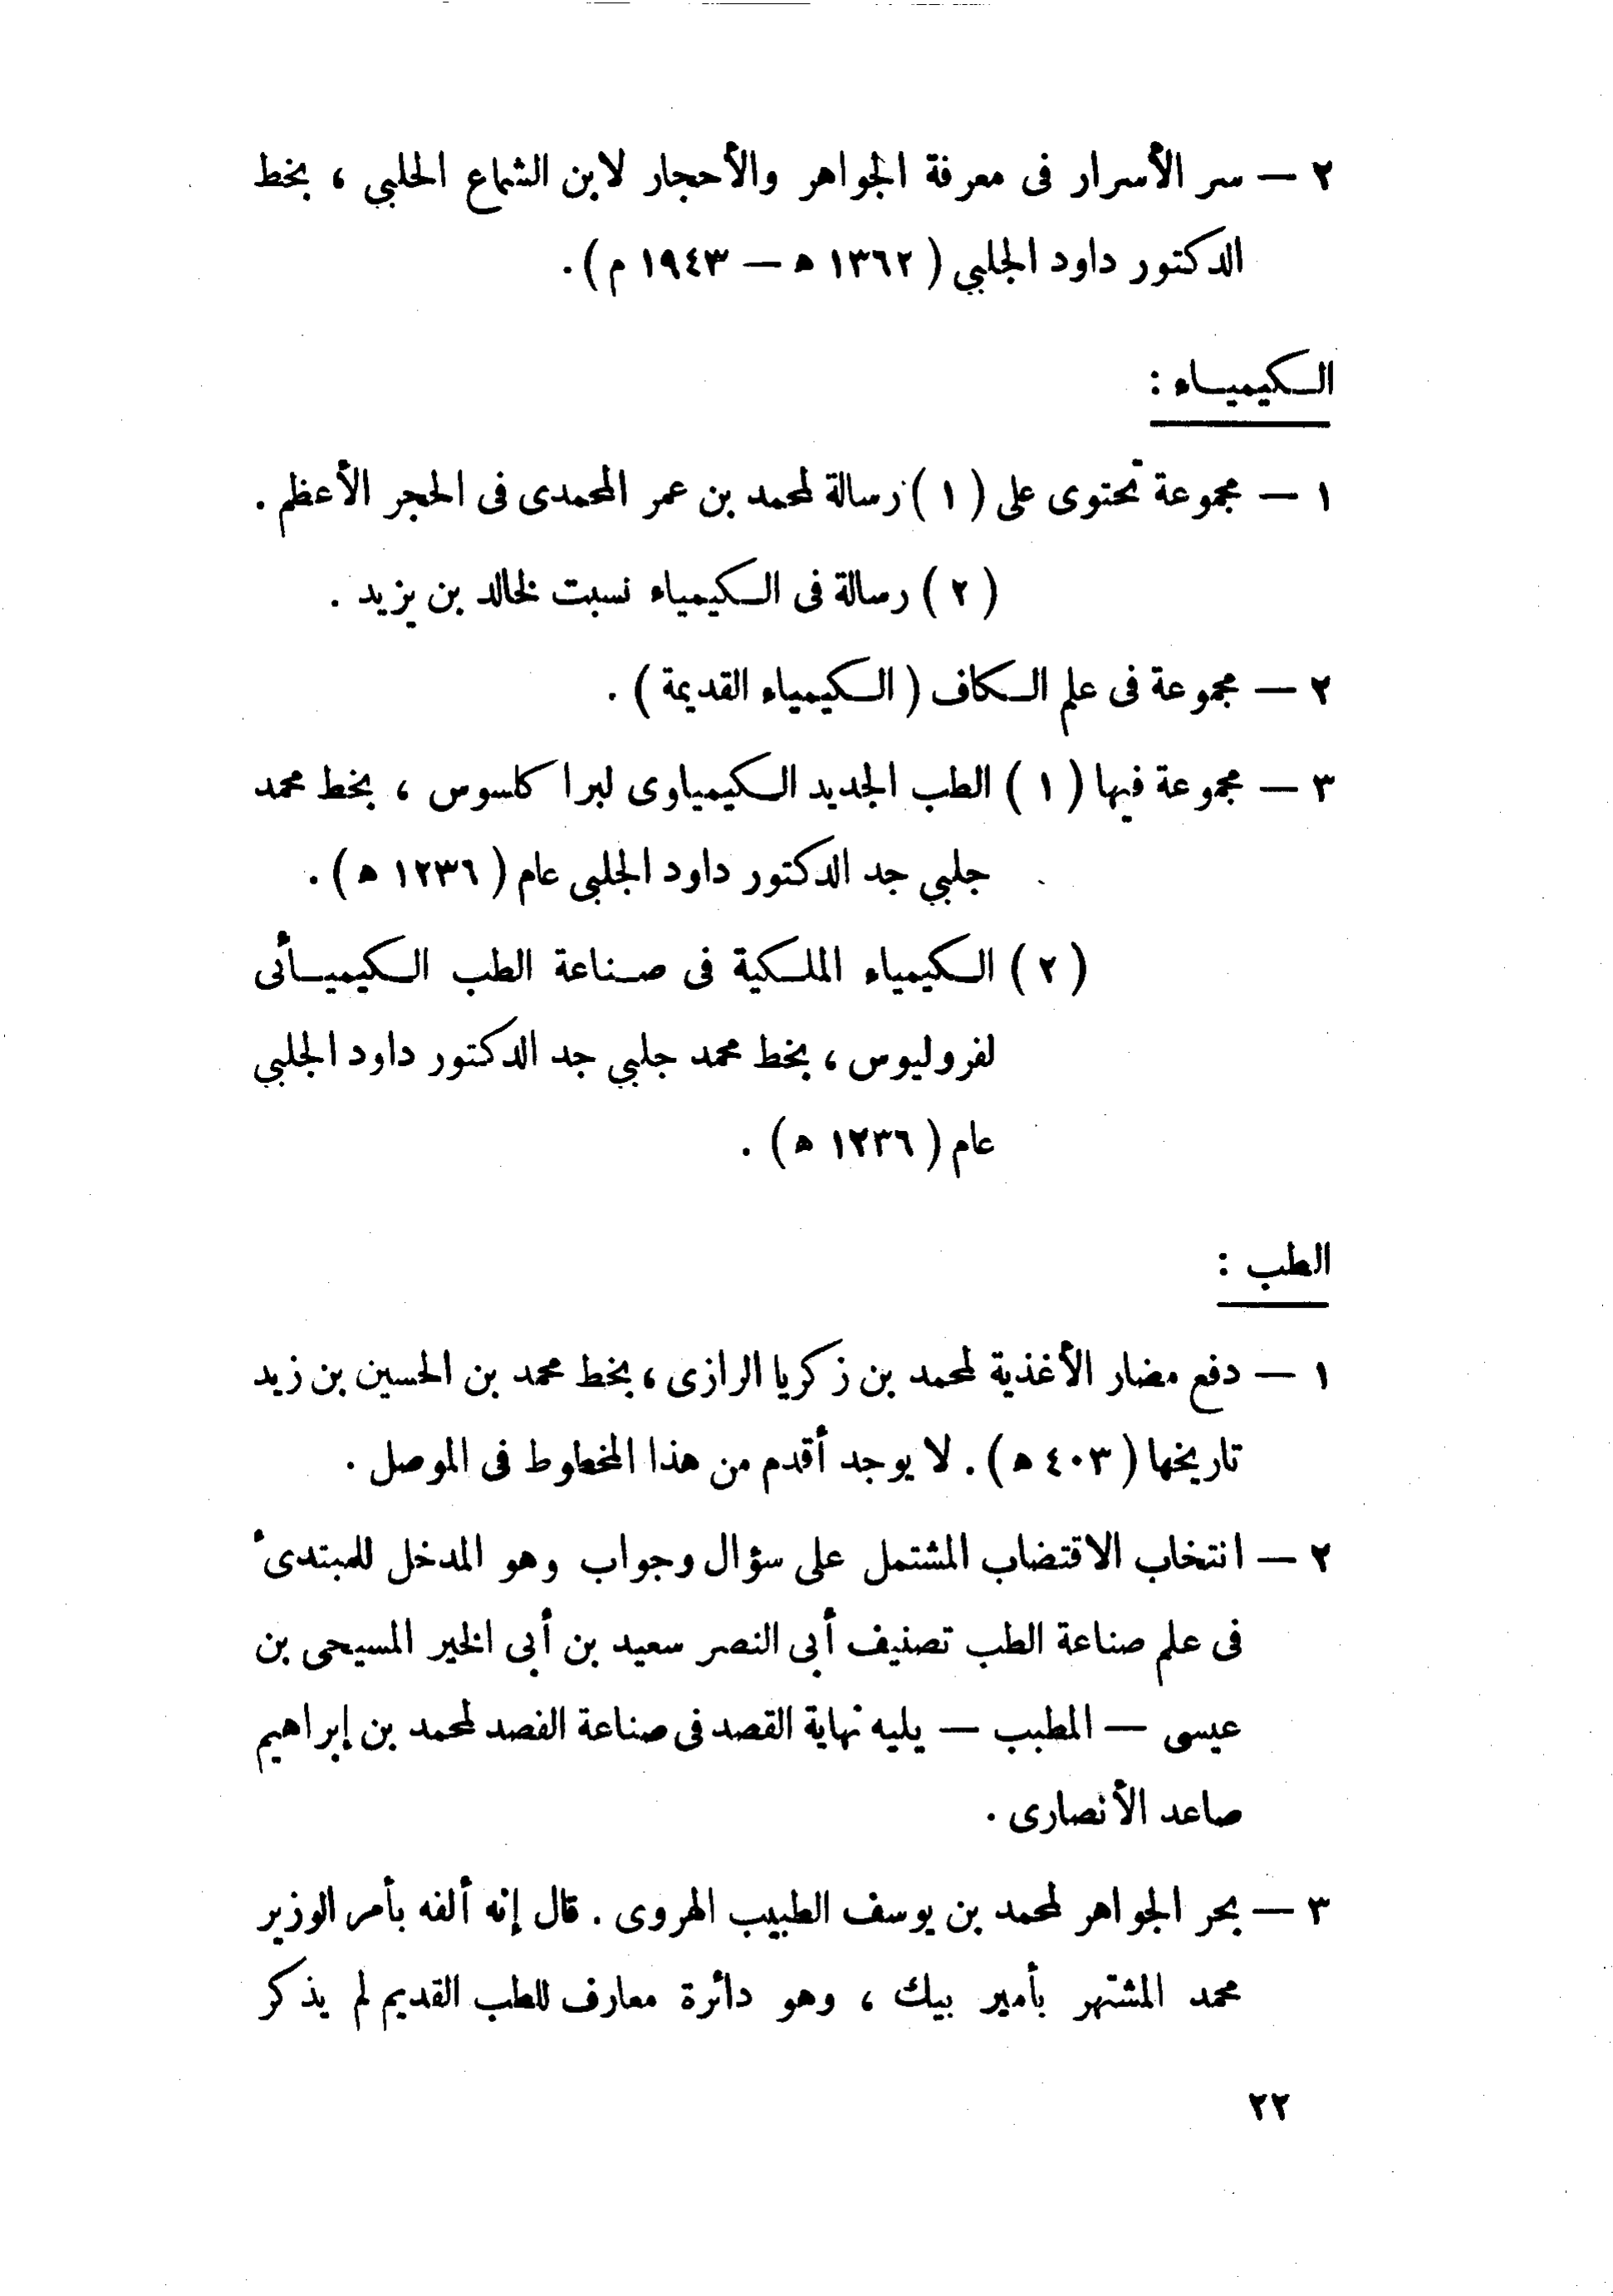 ٢ — سر الأسرار فى معرفة الجواهر والأحجار لابن الشماع الحلبي ، بخط
الدكتور داود الجلبي ( ١٣٦٢ ه — ١٩٤٣ م ) .
الكيمياء :
١ — مجموعة تحتوى على ( ١ ) رسالة لمحمد بن عمر المحمدى فى الحجر الأعظم .
( ٢ ) رسالة فى الكيمياء نسبت لخالد بن يزيد .
٢ — مجموعة فى علم الكاف ( الكيمياء القديمة ) .
٣ — مجموعة فيها ( ١ ) الطب الجديد الكيمياوى لبرا كلسوس ، بخط محمد
جلبي جد الدكتور داود الجلبى عام ( ١٢٣٦ ه ) .
( ٢ ) الكيمياء الملكية فى صناعة الطب الكيميأئى
لفروليوس ، بخط محمد جلبي جد الدكتور داود الجلبي
عام ( ١٢٣٦ ه ) .
الطب :
١ — دفع مضار الأغذية لمحمد بن زكريا الرازى ، بخط محمد بن الحسين بن زيد
تاريخها ( ٤٠٣ ه ) . لا يوجد أقدم من هذا المخطوط فى الموصل .
٢ — انتخاب الاقتضاب المشتمل على سؤال وجواب وهو المدخل للمبتدىء
فى علم صناعة الطب تصنيف أبى النصر سعيد بن أبى الخير المسيحى بن
عيسى — المطبب — يليه نهاية القصد فى صناعة الفصد لمحمد بن إبراهيم
صاعد الأنصارى .
٣ — بحر الجواهر لمحمد بن يوسف الطبيب الهروى . قال إنه ألفه بأمر الوزير
محمد المشتهر بأمير بيك ، وهو دائرة معارف للطب القديم لم يذكر
٢٢